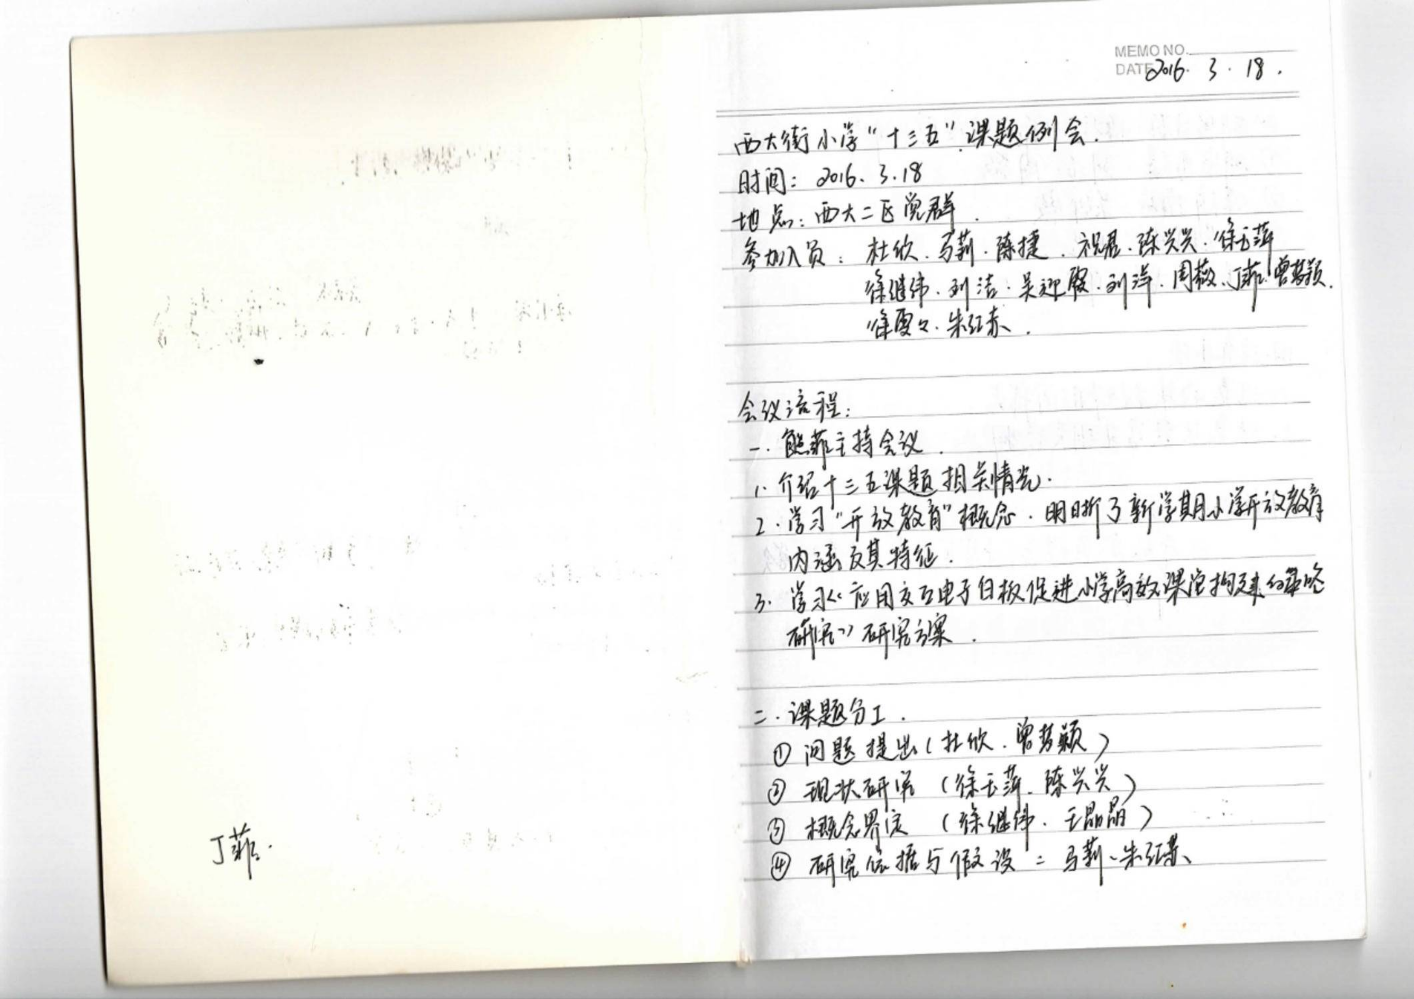 丁菲.
MEMO NO.
DATE 2016. 3. 18.
西大街小学“十三五”课题例会.
时间: 2016. 3.18
地点: 西大二区党群.
参加人员: 杜欣.马莉.陈捷.祝君.陈兴兴.徐玉萍
徐继伟.刘洁.吴迎殷.刘洋.周薇.丁菲.曾梦颖.
徐夏夕.朱红燕.
会议流程:
一.熊菲主持会议.
1.介绍十三五课题相关情况.
2.学习“开放教育”概念.明晰了新学期小学开放教育
内涵及其特征.
3.学习《应用交互电子白板促进小学高效课堂构建的策略
研究》研究方案.
二.课题分工.
①问题提出(杜欣.曾梦颖)
②现状研究(徐玉萍.陈兴兴)
③概念界定(徐继伟.王晶晶)
④研究依据与假设: 马莉、朱红燕、